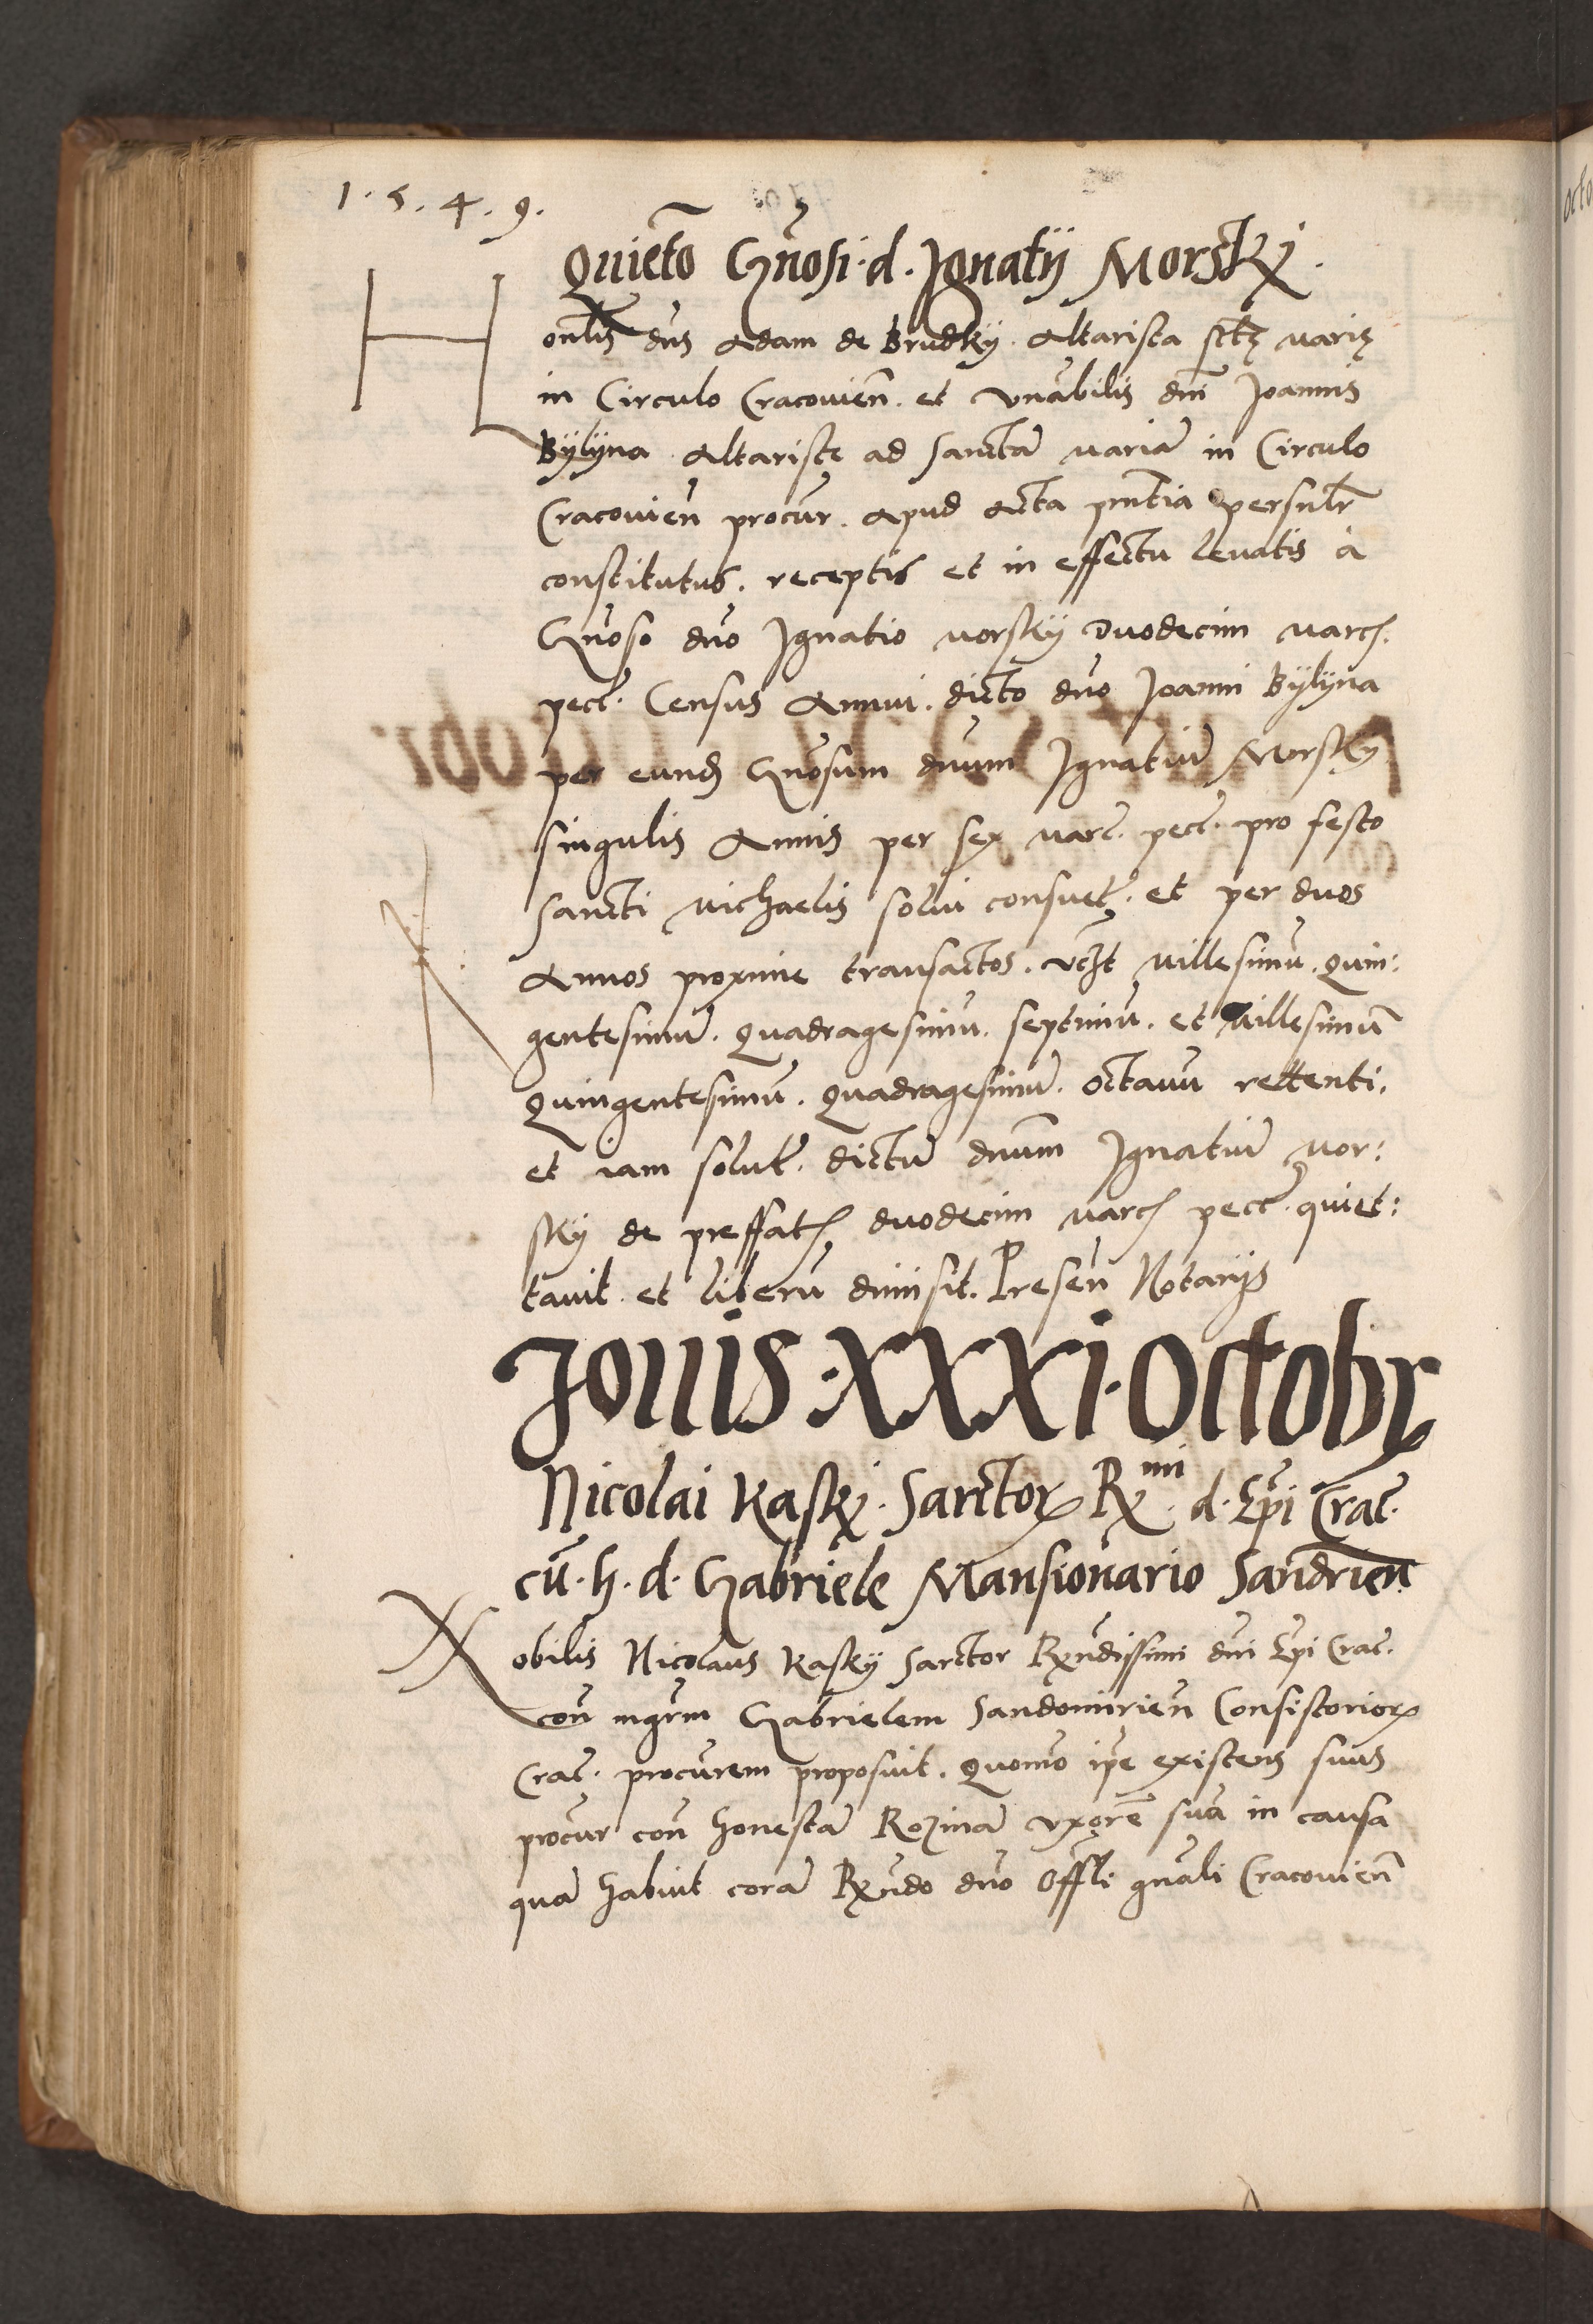 1.5.4.9.
Quietõ Gñosi. d. Ignatij Morskÿ.
Honlis dñs Adam de Brudkÿ. Altarista sctę Marię
in Circulo Cracovieñ. et venabilis dñi Joannis
Bÿlÿna Altariste ad Sanctã Mariã in Circulo
Cracovieñ procur. Apud Acta pñtia persnlr
constitutus. receptis et in effectu levatis à
Gñoso dño Ignatio Morskÿ Duodecim Marc.
pecc. Census Annui. dicto dño Joanni Bÿlÿna
per eund Gñosum dnum Ignatiũ Morskÿ
singulis Annis per sex Marc. pecc. pro festo
Sancti Michaelis solui consuet. et per duos
Annos proxime transactos. vczt Millesimũ. Quin:
gentesimũ. Quadragesimũ. septimũ. et Millesimũ
Quingentesimũ. Quadragesimũ. Octauũ rettenti.
et iam solut. dictũ dnum Ignatiũ Mor:
skÿ de preffat duodecim Marc pecc. quiet:
tauit. et liberũ dimisit. Preseñ Notarijs
Jouis. XXXI. Octobr
Nicolai Kaskÿ. Sarctor R mi d. Epi Crac.
cũ. h. d. Gabriele Mansionario Sandrien
Nobilis Nicolaus Kaskÿ Sarctor Rxndissimi dñi Epi Crac.
coñ mgrm Gabrielem Sandomirieñ Consistorior
Crac. procurem proposuit. Quomo ipe existens suus
procur coñ honestã Rozinã uxorẽ suã in causa
quã habuit corã Rxndo dño Offli gnali Cracovieñ